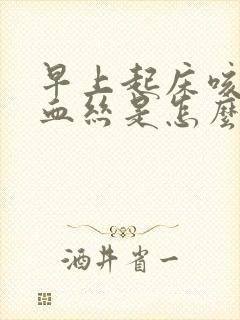 早上起床咳
血丝是怎麼
酒井省一